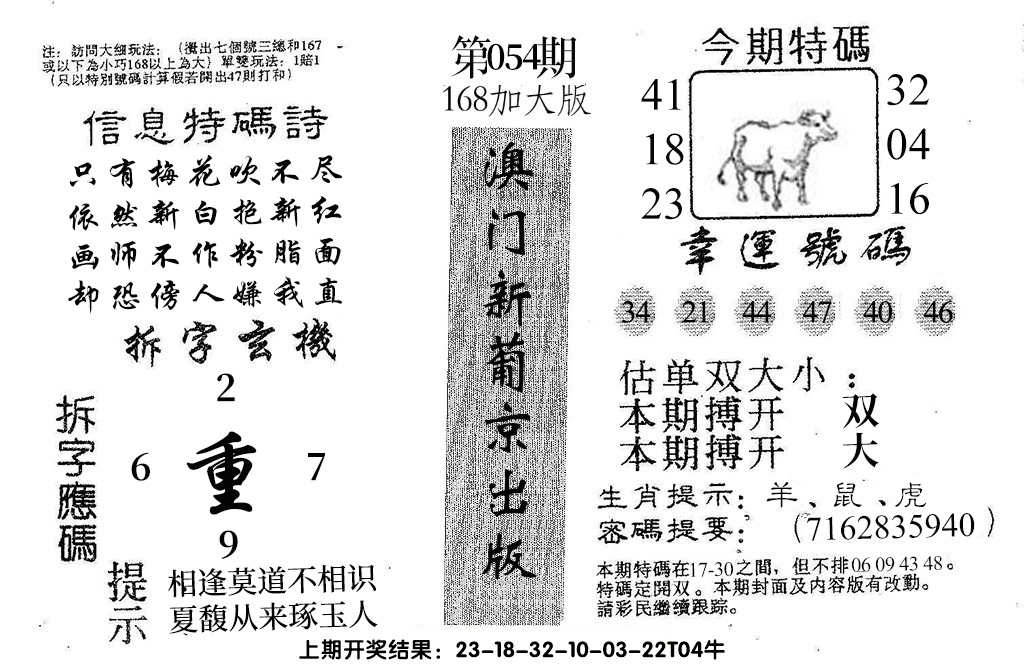 注：訪問大細玩法：（攪出七個號三總和167
或以下為小巧168以上為大）單雙玩法：1賠1
（只以特別號碼計算假若開出47則打和）
信息特碼詩
只有梅花吹不尽
依然新白抱新红
画师不作粉脂面
却恐傍人嫌我直
拆字玄機
拆字應碼
2
6 重 7
9
提示
相逢莫道不相识
夏馥从来琢玉人
第054期
168加大版
澳门新葡京出版
今期特碼
41 32
18 04
23 16
幸運號碼
34 21 44 47 40 46
估单双大小：
本期搏开 双
本期搏开 大
生肖提示：羊、鼠、虎
密碼提要：（7162835940）
本期特碼在17-30之間，但不排06 09 43 48。
特碼定開双。本期封面及内容版有改動。
請彩民繼續跟踪。
上期开奖结果：23-18-32-10-03-22T04牛